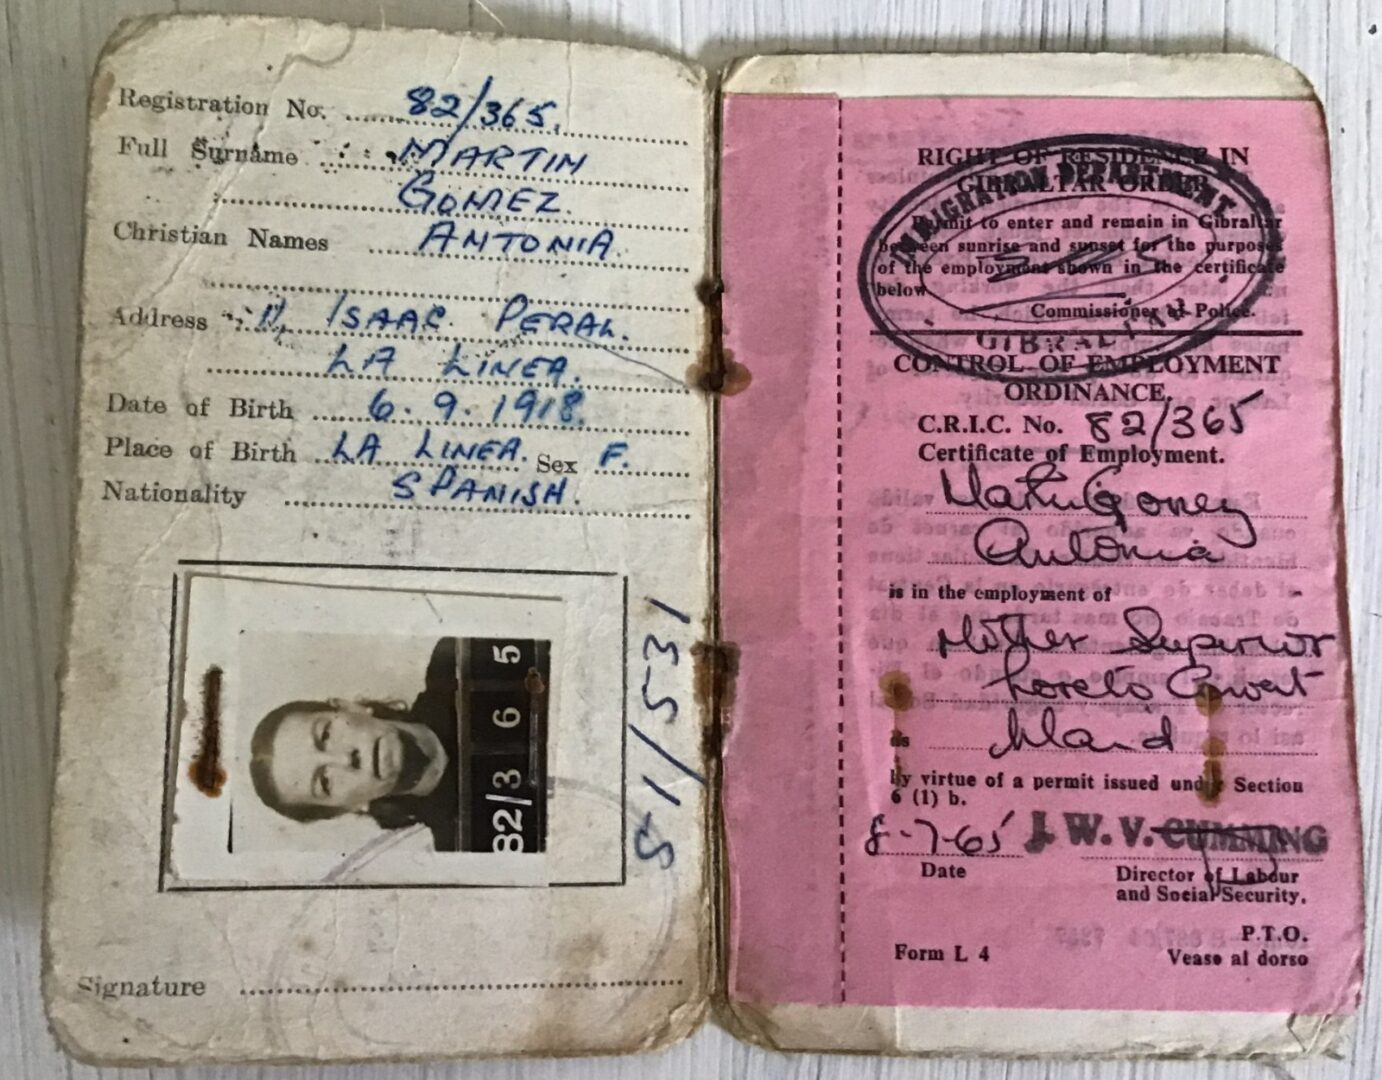 Registration No. 82/365.
Full Surname MARTIN
GOMEZ.
Christian Names ANTONIA.
Address 11, ISAAC PERAL.
LA LINEA.
Date of Birth 6.9.1918.
Place of Birth LA LINEA. Sex F.
Nationality SPANISH.
82/3 6 5
135/15
Signature
RIGHT OF RESIDENCE IN
GIBRALTAR ORDER
Permit to enter and remain in Gibraltar
between sunrise and sunset for the purposes
of the employment shown in the certificate
below.
Commissioner of Police.
IMMIGRATION DEPARTMENT
GIBRALTAR
CONTROL OF EMPLOYMENT
ORDINANCE.
C.R.I.C. No. 82/365
Certificate of Employment.
Martin Gomez
Antonia
is in the employment of
Mother Superior
Loreto Convent
as Maid
by virtue of a permit issued under Section
6 (1) b.
8-7-65 J. W. V. CUMMING
Date
Director of Labour
and Social Security.
P.T.O.
Form L 4
Vease al dorso